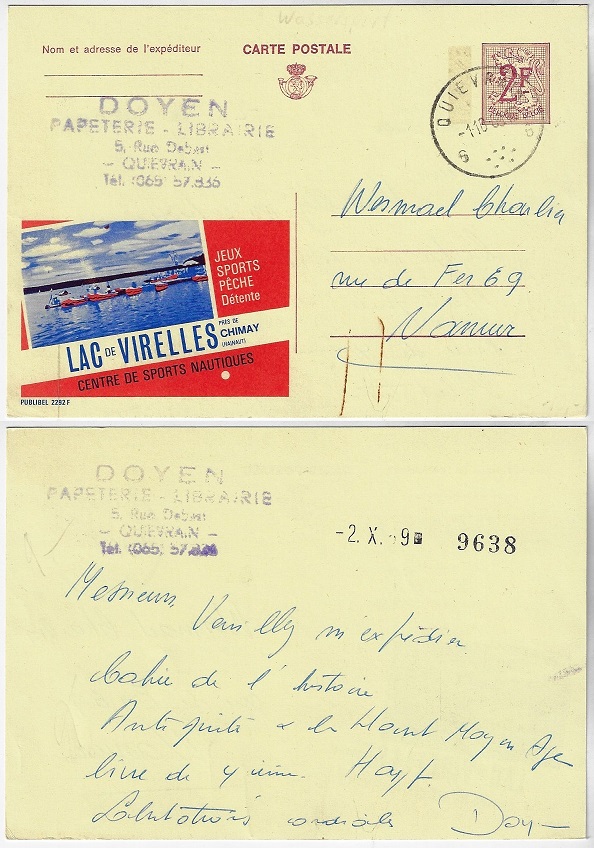 Nom et adresse de l'expéditeur
CARTE POSTALE
2F
QUIEVRAIN
-1.10
6 6
DOYEN
PAPETERIE - LIBRAIRIE
5, Rue Debast
- QUIEVRAIN -
Tél. (065) 57.836
Wesmael Charlier
rue de Fer 69
Namur
JEUX
SPORTS
PÊCHE
Détente
LAC DE VIRELLES PRÈS DE CHIMAY (HAINAUT)
CENTRE DE SPORTS NAUTIQUES
PUBLIBEL 2292 F
DOYEN
PAPETERIE - LIBRAIRIE
5, Rue Debast
- QUIEVRAIN -
Tél. (065) 57.836
-2. X. 9638
Messieurs,
Veuillez m'expédier
Cahier de l'histoire
Antiquité & le Haut Moyen Age
livre de 4 ième Hayt.
Salutations cordiales Doyen